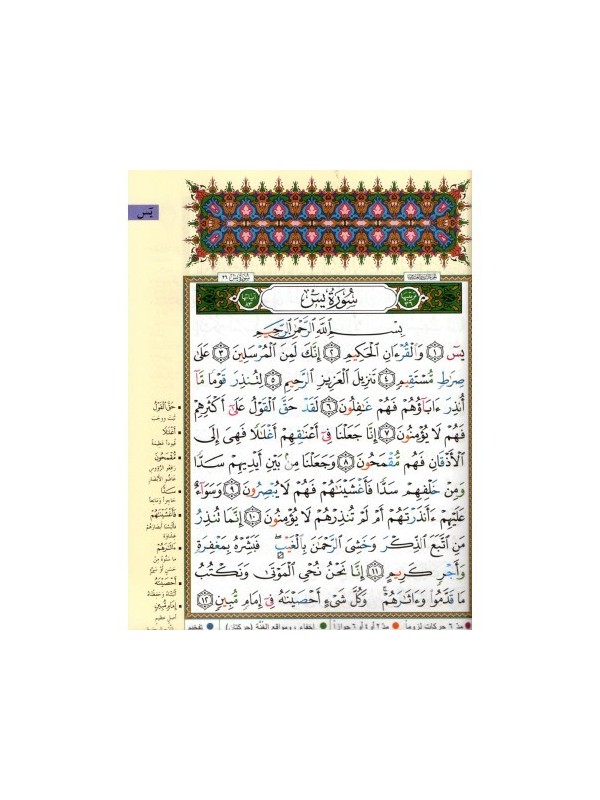 يس
سُورَةُ يسٓ ٣٦
سُورَةُ يسٓ
بِسْمِ ٱللَّهِ ٱلرَّحْمَٰنِ ٱلرَّحِيمِ
يسٓ ١ وَٱلْقُرْءَانِ ٱلْحَكِيمِ ٢ إِنَّكَ لَمِنَ ٱلْمُرْسَلِينَ ٣ عَلَىٰ
صِرَٰطٍ مُّسْتَقِيمٍ ٤ تَنزِيلَ ٱلْعَزِيزِ ٱلرَّحِيمِ ٥ لِتُنذِرَ قَوْمًا مَّآ
أُنذِرَ ءَابَآؤُهُمْ فَهُمْ غَٰفِلُونَ ٦ لَقَدْ حَقَّ ٱلْقَوْلُ عَلَىٰٓ أَكْثَرِهِمْ
فَهُمْ لَا يُؤْمِنُونَ ٧ إِنَّا جَعَلْنَا فِىٓ أَعْنَٰقِهِمْ أَغْلَٰلًا فَهِىَ إِلَى
ٱلْأَذْقَانِ فَهُم مُّقْمَحُونَ ٨ وَجَعَلْنَا مِنۢ بَيْنِ أَيْدِيهِمْ سَدًّا
وَمِنْ خَلْفِهِمْ سَدًّا فَأَغْشَيْنَٰهُمْ فَهُمْ لَا يُبْصِرُونَ ٩ وَسَوَآءٌ
عَلَيْهِمْ ءَأَنذَرْتَهُمْ أَمْ لَمْ تُنذِرْهُمْ لَا يُؤْمِنُونَ ١٠ إِنَّمَا تُنذِرُ
مَنِ ٱتَّبَعَ ٱلذِّكْرَ وَخَشِىَ ٱلرَّحْمَٰنَ بِٱلْغَيْبِ ۖ فَبَشِّرْهُ بِمَغْفِرَةٍ
وَأَجْرٍ كَرِيمٍ ١١ إِنَّا نَحْنُ نُحْىِ ٱلْمَوْتَىٰ وَنَكْتُبُ
مَا قَدَّمُوا۟ وَءَاثَٰرَهُمْ ۚ وَكُلَّ شَىْءٍ أَحْصَيْنَٰهُ فِىٓ إِمَامٍ مُّبِينٍ ١٢
حَقَّ ٱلْقَوْلُ
ثبت ووجب
أَغْلَٰلًا
قيوداً عظيمة
مُّقْمَحُونَ
رافعو الرؤوس
غاضّو الأبصار
سَدًّا
حاجزاً ومانعاً
فَأَغْشَيْنَٰهُمْ
فألبسنا أبصارهم
غشاوة
ءَاثَٰرَهُمْ
ما سنّوه من
حسن أو سيّئ
أَحْصَيْنَٰهُ
أثبتناه وحفظناه
إِمَامٍ مُّبِينٍ
أصل عظيم
مدّ ٦ حركات لزوماً
مدّ ٢ أو ٤ أو ٦ جوازاً
إخفاء ومواقع الغُنّة (حركتان)
تفخيم